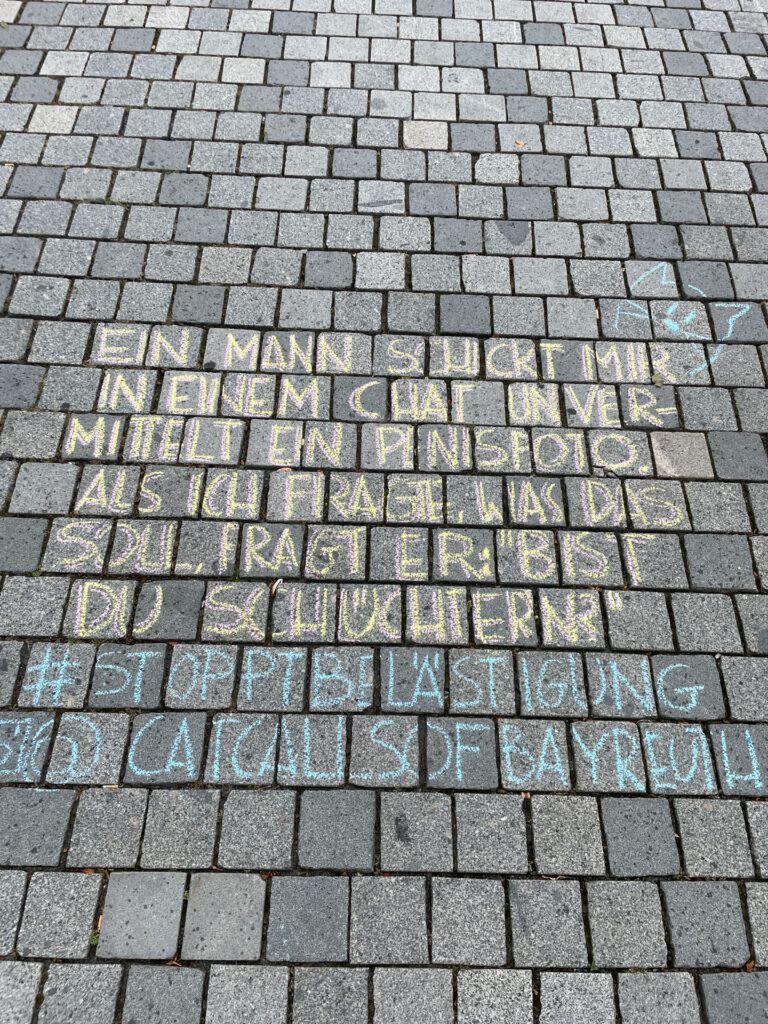 EIN MANN SCHICKT MIR
IN EINEM CHAT UNVER-
MITTELT EIN PENISFOTO.
ALS ICH FRAGTE, WAS DAS
SOLL, FRAGT ER: "BIST
DU SCHÜCHTERN?"
#STOPPTBELÄSTIGUNG
@CATCALLSOFBAYREUTH